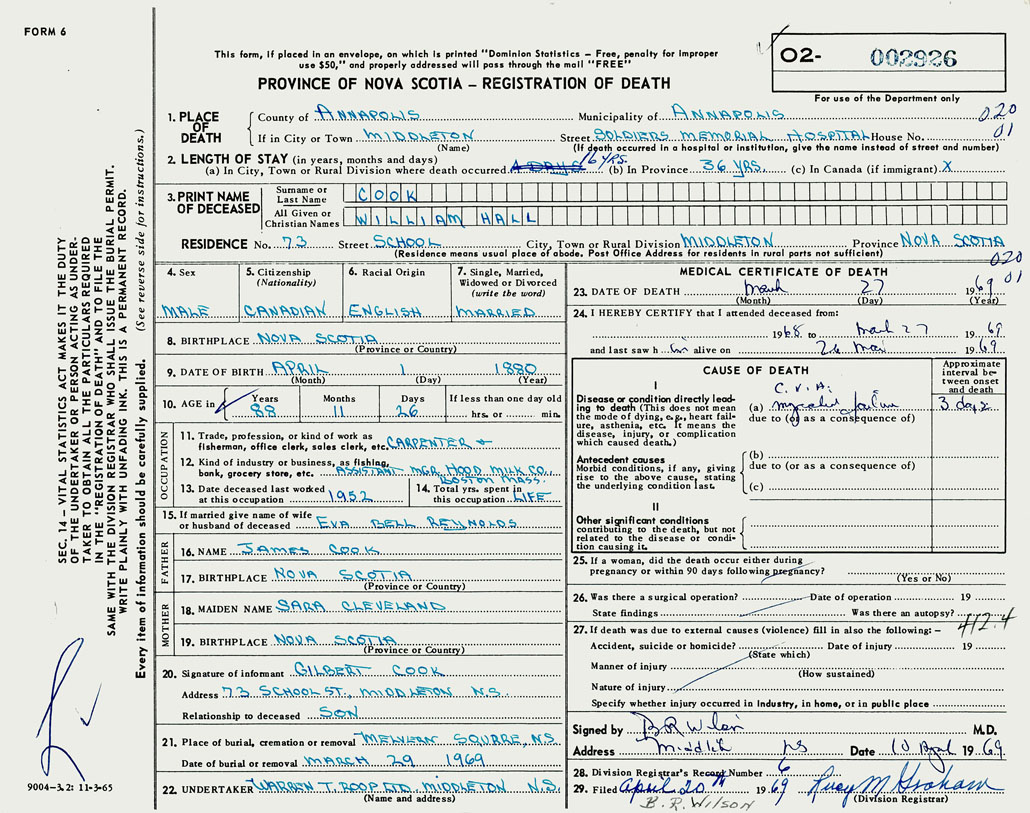 FORM 6
This form, if placed in an envelope, on which is printed "Dominion Statistics – Free, penalty for improper
use $50," and properly addressed will pass through the mail "FREE"
PROVINCE OF NOVA SCOTIA – REGISTRATION OF DEATH
02- 002926
For use of the Department only
020
01
1. PLACE OF DEATH
County of ANNAPOLIS Municipality of ANNAPOLIS
If in City or Town MIDDLETON Street SOLDIERS MEMORIAL HOSPITAL House No.
(Name) (If death occurred in a hospital or institution, give the name instead of street and number)
2. LENGTH OF STAY (in years, months and days)
(a) In City, Town or Rural Division where death occurred 16 YRS. (b) In Province 36 YRS. (c) In Canada (if immigrant) X
3. PRINT NAME OF DECEASED
Surname or Last Name COOK
All Given or Christian Names WILLIAM HALL
RESIDENCE No. 73 Street SCHOOL City, Town or Rural Division MIDDLETON Province NOVA SCOTIA
(Residence means usual place of abode. Post Office Address for residents in rural parts not sufficient)
020
01
4. Sex
MALE
5. Citizenship (Nationality)
CANADIAN
6. Racial Origin
ENGLISH
7. Single, Married, Widowed or Divorced (write the word)
MARRIED
8. BIRTHPLACE NOVA SCOTIA
(Province or Country)
9. DATE OF BIRTH APRIL 1 1880
(Month) (Day) (Year)
10. AGE in Years Months Days If less than one day old
88 11 26 hrs. or min.
OCCUPATION
11. Trade, profession, or kind of work as
fisherman, office clerk, sales clerk, etc. CARPENTER +
12. Kind of industry or business, as fishing,
bank, grocery store, etc. ASSISTANT MGR HOOD MILK CO.,
BOSTON MASS.
13. Date deceased last worked
at this occupation 1952
14. Total yrs. spent in
this occupation LIFE
15. If married give name of wife
or husband of deceased EVA BELL REYNOLDS
FATHER
16. NAME JAMES COOK
17. BIRTHPLACE NOVA SCOTIA
(Province or Country)
MOTHER
18. MAIDEN NAME SARA CLEVELAND
19. BIRTHPLACE NOVA SCOTIA
(Province or Country)
20. Signature of informant GILBERT COOK
Address 73 SCHOOL ST., MIDDLETON N.S.
Relationship to deceased SON
21. Place of burial, cremation or removal MELVERN SQURRE, N.S.
Date of burial or removal MARCH 29 1969
22. UNDERTAKER WARREN T. ROOP LTD, MIDDLETON N.S.
(Name and address)
MEDICAL CERTIFICATE OF DEATH
23. DATE OF DEATH March 27 1969
(Month) (Day) (Year)
24. I HEREBY CERTIFY that I attended deceased from:
1968 to March 27 1969
and last saw him alive on 26 Mar 1969
CAUSE OF DEATH
Approximate interval between onset and death
I
C.V.A.
Disease or condition directly leading to death (This does not mean the mode of dying, e.g., heart failure, asthenia, etc. It means the disease, injury, or complication which caused death.)
(a) failure 3 days
due to (or as a consequence of)
Antecedent causes
Morbid conditions, if any, giving rise to the above cause, stating the underlying condition last.
(b)
due to (or as a consequence of)
(c)
II
Other significant conditions
contributing to the death, but not related to the disease or condition causing it.
25. If a woman, did the death occur either during
pregnancy or within 90 days following pregnancy?
(Yes or No)
26. Was there a surgical operation? Date of operation 19
State findings Was there an autopsy?
412.4
27. If death was due to external causes (violence) fill in also the following: –
Accident, suicide or homicide? Date of injury 19
(State which)
Manner of injury
(How sustained)
Nature of injury
Specify whether injury occurred in Industry, in home, or in public place
Signed by B R Wilson M.D.
Address NS Date 10 April 1969
28. Division Registrar's Record Number 6
29. Filed April 20th 1969 Lucy M Graham
B. R. WILSON (Division Registrar)
SEC. 14 – VITAL STATISTICS ACT MAKES IT THE DUTY
OF THE UNDERTAKER OR PERSON ACTING AS UNDERTAKER
TO OBTAIN ALL THE PARTICULARS REQUIRED
IN THE "REGISTRATION OF DEATH" AND TO FILE THE
SAME WITH THE DIVISION REGISTRAR WHO SHALL ISSUE THE BURIAL PERMIT.
WRITE PLAINLY WITH UNFADING INK. THIS IS A PERMANENT RECORD.
Every item of information should be carefully supplied. (See reverse side for instructions.)
9004-3.2: 11-3-65